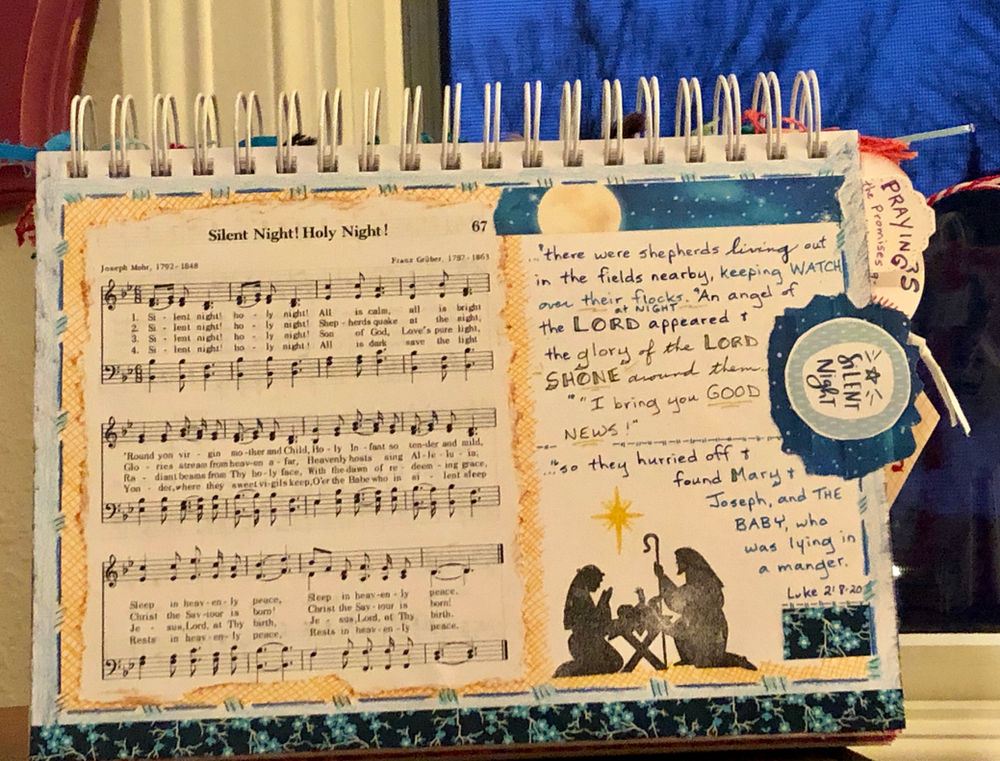 Silent Night! Holy Night!
67
Joseph Mohr, 1792-1848
Franz Grüber, 1787-1863
1. Si - lent night! ho - ly night! All is calm, all is bright
2. Si - lent night! ho - ly night! Shep - herds quake at the night,
3. Si - lent night! ho - ly night! Son of God, Love's pure light,
4. Si - lent night! ho - ly night! All is dark save the light
'Round yon vir - gin mo-ther and Child, Ho - ly In - fant so ten-der and mild,
Glo - ries stream from heav-en a - far, Heavenly hosts sing Al - le - lu - ia;
Ra - diant beams from Thy ho-ly face, With the dawn of re - deem - ing grace,
Yon - der, where they sweet vi-gils keep, O'er the Babe who in si - lent sleep
Sleep in heav - en - ly peace, Sleep in heav - en - ly peace.
Christ the Sav - iour is born! Christ the Sav - iour is born!
Je - sus, Lord, at Thy birth, Je - sus, Lord, at Thy birth.
Rests in heav - en - ly peace, Rests in heav - en - ly peace.
..."there were shepherds living out
in the fields nearby, keeping WATCH
over their flocks at NIGHT. "An angel of
the LORD appeared &
the glory of the LORD
SHONE around them...
" "I bring you GOOD
NEWS!"
..."so they hurried off &
found Mary &
Joseph, and THE
BABY, who
was lying in
a manger.
Luke 2:8-20
SILENT
Night
PRAYING
the Promises